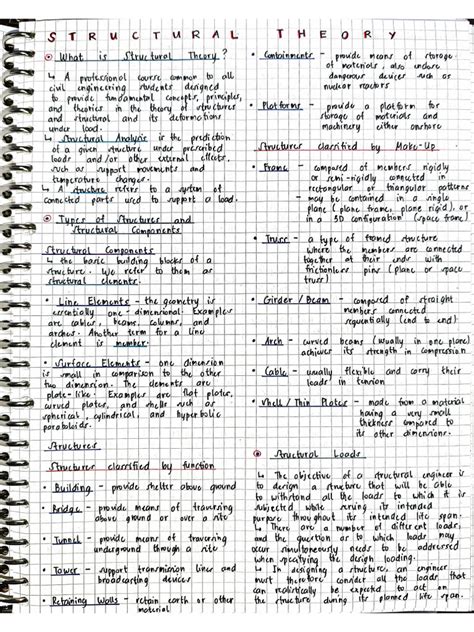 STRUCTURAL THEORY
What is Structural Theory?
↳ A professional course common to all
civil engineering students designed
to provide fundamental concepts, principles,
and theories in the theory of structures
and structural and its deformations
under load.
↳ Structural Analysis is the prediction
of a given structure under prescribed
loads and/or other external effects,
such as support movements and
temperature changes.
↳ A structure refers to a system of
connected parts used to support a load.
Types of Structures and
Structural Components
Structural Components
↳ the basic building blocks of a
structure. We refer to them as
structural elements.
• Line Elements - the geometry is
essentially one-dimensional. Examples
are cables, beams, columns, and
arches. Another term for a line
element is member.
• Surface Elements - one dimension
is small in comparison to the other
two dimension. The elements are
plate-like. Examples are flat plates,
curved plates, and shells such as
spherical, cylindrical, and hyperbolic
paraboloids.
Structures
Structures classified by function
• Building - provide shelter above ground
• Bridge - provide means of traversing
above ground or over a site
• Tunnel - provide means of traversing
underground through a site
• Tower - support transmission lines and
broadcasting devices
• Retaining Walls - retain earth or other
material
• Containments - provide means of storage
of materials, also enclose
dangerous devices such as
nuclear reactors
• Platforms - provide a platform for
storage of materials and
machinery either onshore
Structures classified by Make-Up
• Frame - composed of members rigidly
or semi-rigidly connected in
rectangular or triangular patterns
- may be contained in a single
plane (plane frame, plane rigid), or
in a 3D configuration (space frame)
• Truss - a type of framed structure
where the members are connected
together at their ends with
frictionless pins (plane or space
truss)
• Girder / Beam - composed of straight
members connected
sequentially (end to end)
• Arch - curved beams (usually in one plane)
achieves its strength in compression
• Cable - usually flexible and carry their
loads in tension
• Shell / Thin Plates - made from a material
having a very small
thickness compared to
its other dimensions.
Structural Loads
↳ The objective of a structural engineer is
to design a structure that will be able
to withstand all the loads to which it is
subjected while serving its intended
purpose throughout its intended life span.
↳ There are a number of different loads,
and the question as to which loads may
occur simultaneously needs to be addressed
when specifying the design loading.
↳ In designing a structure, an engineer
must therefore consider all the loads that
can realistically be expected to act on
the structure during its planned life span.